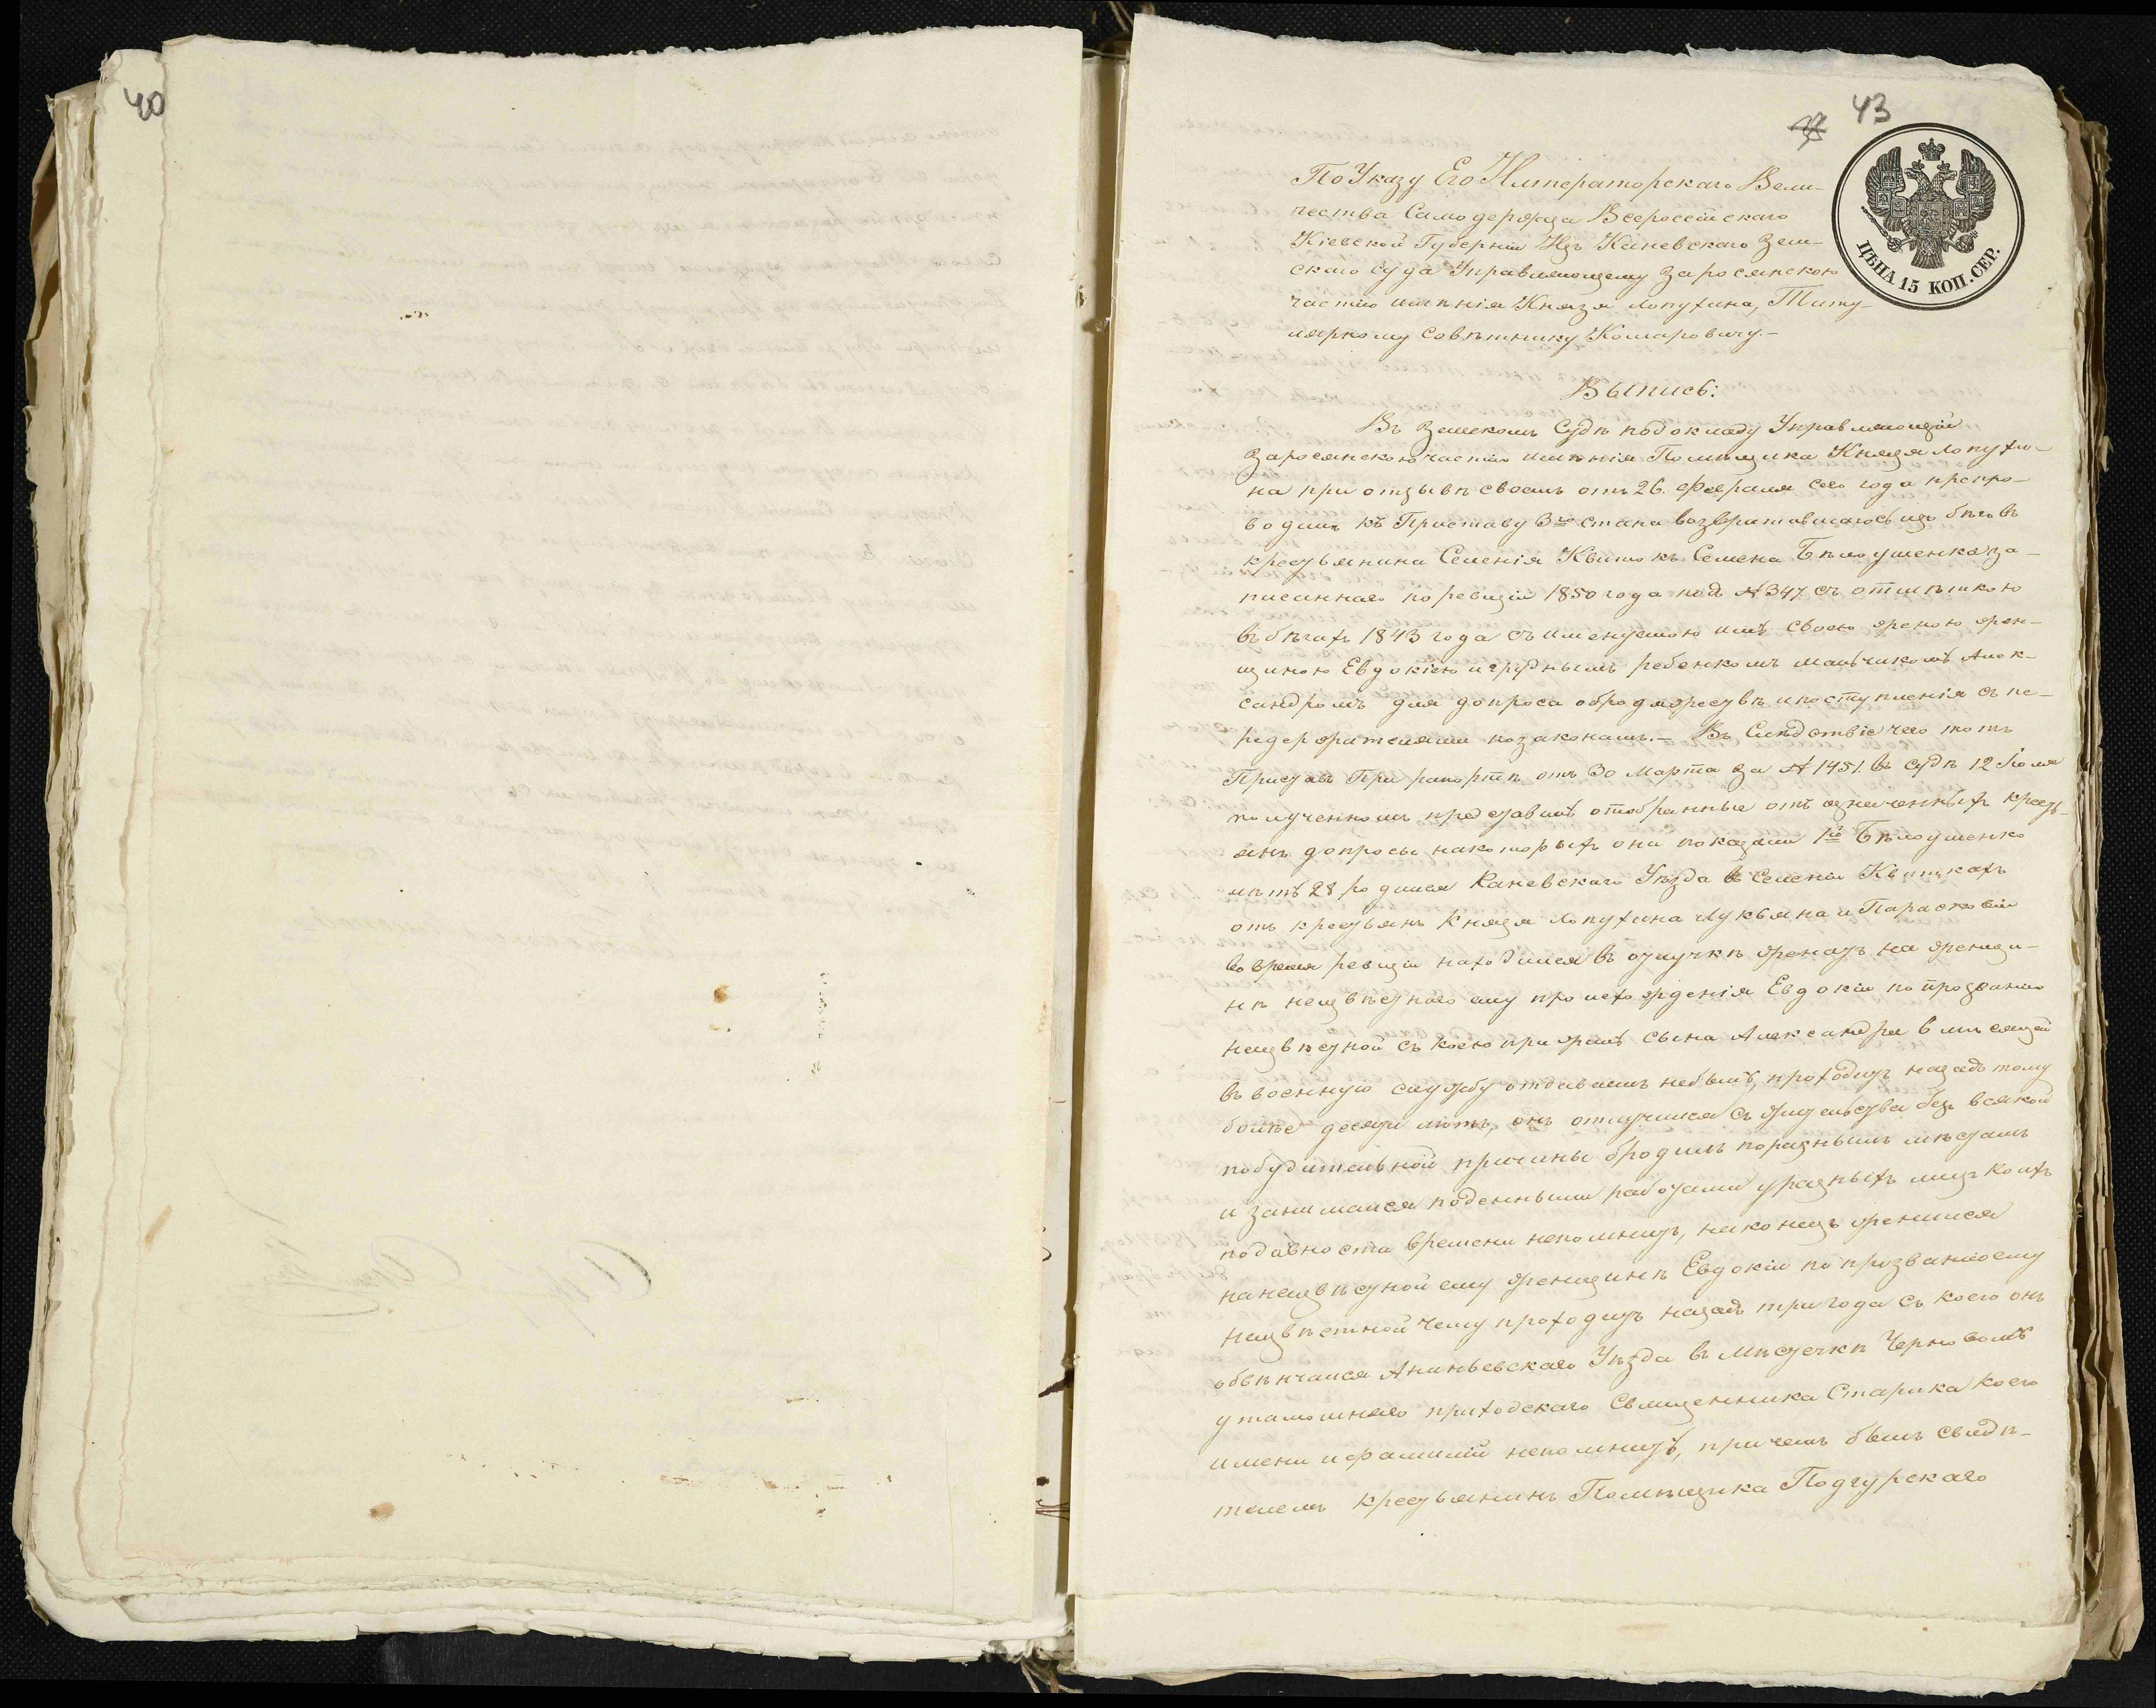 40
43
ЦѢНА 15 КОП. СЕР.
По Указу Его Императорскаго Вели-
чества Самодержца Всероссійскаго
Кіевской Губерніи Изъ Каневскаго Зем-
скаго суда Управляющему Заросянскою
частію имѣнія Князя Лопухина, Титу-
лярному Совѣтнику Комаровичу.-
Выпись:
Въ Земскомъ Судѣ по докладу Управляющій
Заросянскою частію имѣнія Помѣщика Князя Лопухи-
на при отзывѣ своемъ отъ 26. Февраля сего года препро-
водилъ къ Приставу 3го стана возвратившагось изъ бѣговъ
крестьянина Селенія Квитокъ Семена Бѣлоушенка за-
писаннаго по ревизіи 1850 года подъ № 347 съ отмѣткою
въ бѣгахъ 1843 года съ именуемою имъ своею женою жен-
щиною Евдокіею и груднымъ ребенкомъ мальчикомъ Алек-
сандромъ для допроса о бродяжествѣ и поступленія съ пе-
редержателями по законамъ.- Въ Слѣдствіе чего тотъ
Приставъ При рапортѣ отъ 30 Марта за № 1451. въ судѣ 12 Іюля
полученномъ представилъ отобранные отъ означенныхъ кресть-
янъ допросы на которыхъ они показали 1й Бѣлоушенко
лѣтъ 28 родился Каневскаго Уѣзда въ Селеніи Квиткахъ
отъ крестьянъ Князя Лопухина Лукьяна и Парасковіи
во время ревизіи находился въ отлучкѣ женатъ на женщи-
нѣ неизвѣстнаго ему происхожденія Евдокіи по прозванію
неизвѣстной съ коею прижилъ сына Александра 6 мѣсяцей
въ военную службу отдаваемъ небылъ, проходитъ назадъ тому
болѣе десяти лѣтъ, онъ отлучился съ жительства безъ всякой
побудительной причины бродилъ по разнымъ мѣстамъ
и занимался поденными работами у разныхъ лицъ коихъ
по давности времени непомнитъ, наконецъ женился
на неизвѣстной ему женщинѣ Евдокіи по прозванію ему
неизвѣстной чему проходитъ назадъ три года съ коего онъ
обвѣнчался Ананьевскаго Уѣзда въ Мѣстечкѣ Черноволъ
у тамошняго приходскаго Священника Старика коего
имени и фамиліи непомнитъ, причемъ былъ свидѣ-
телемъ крестьянинъ Помѣщика Подгурскаго